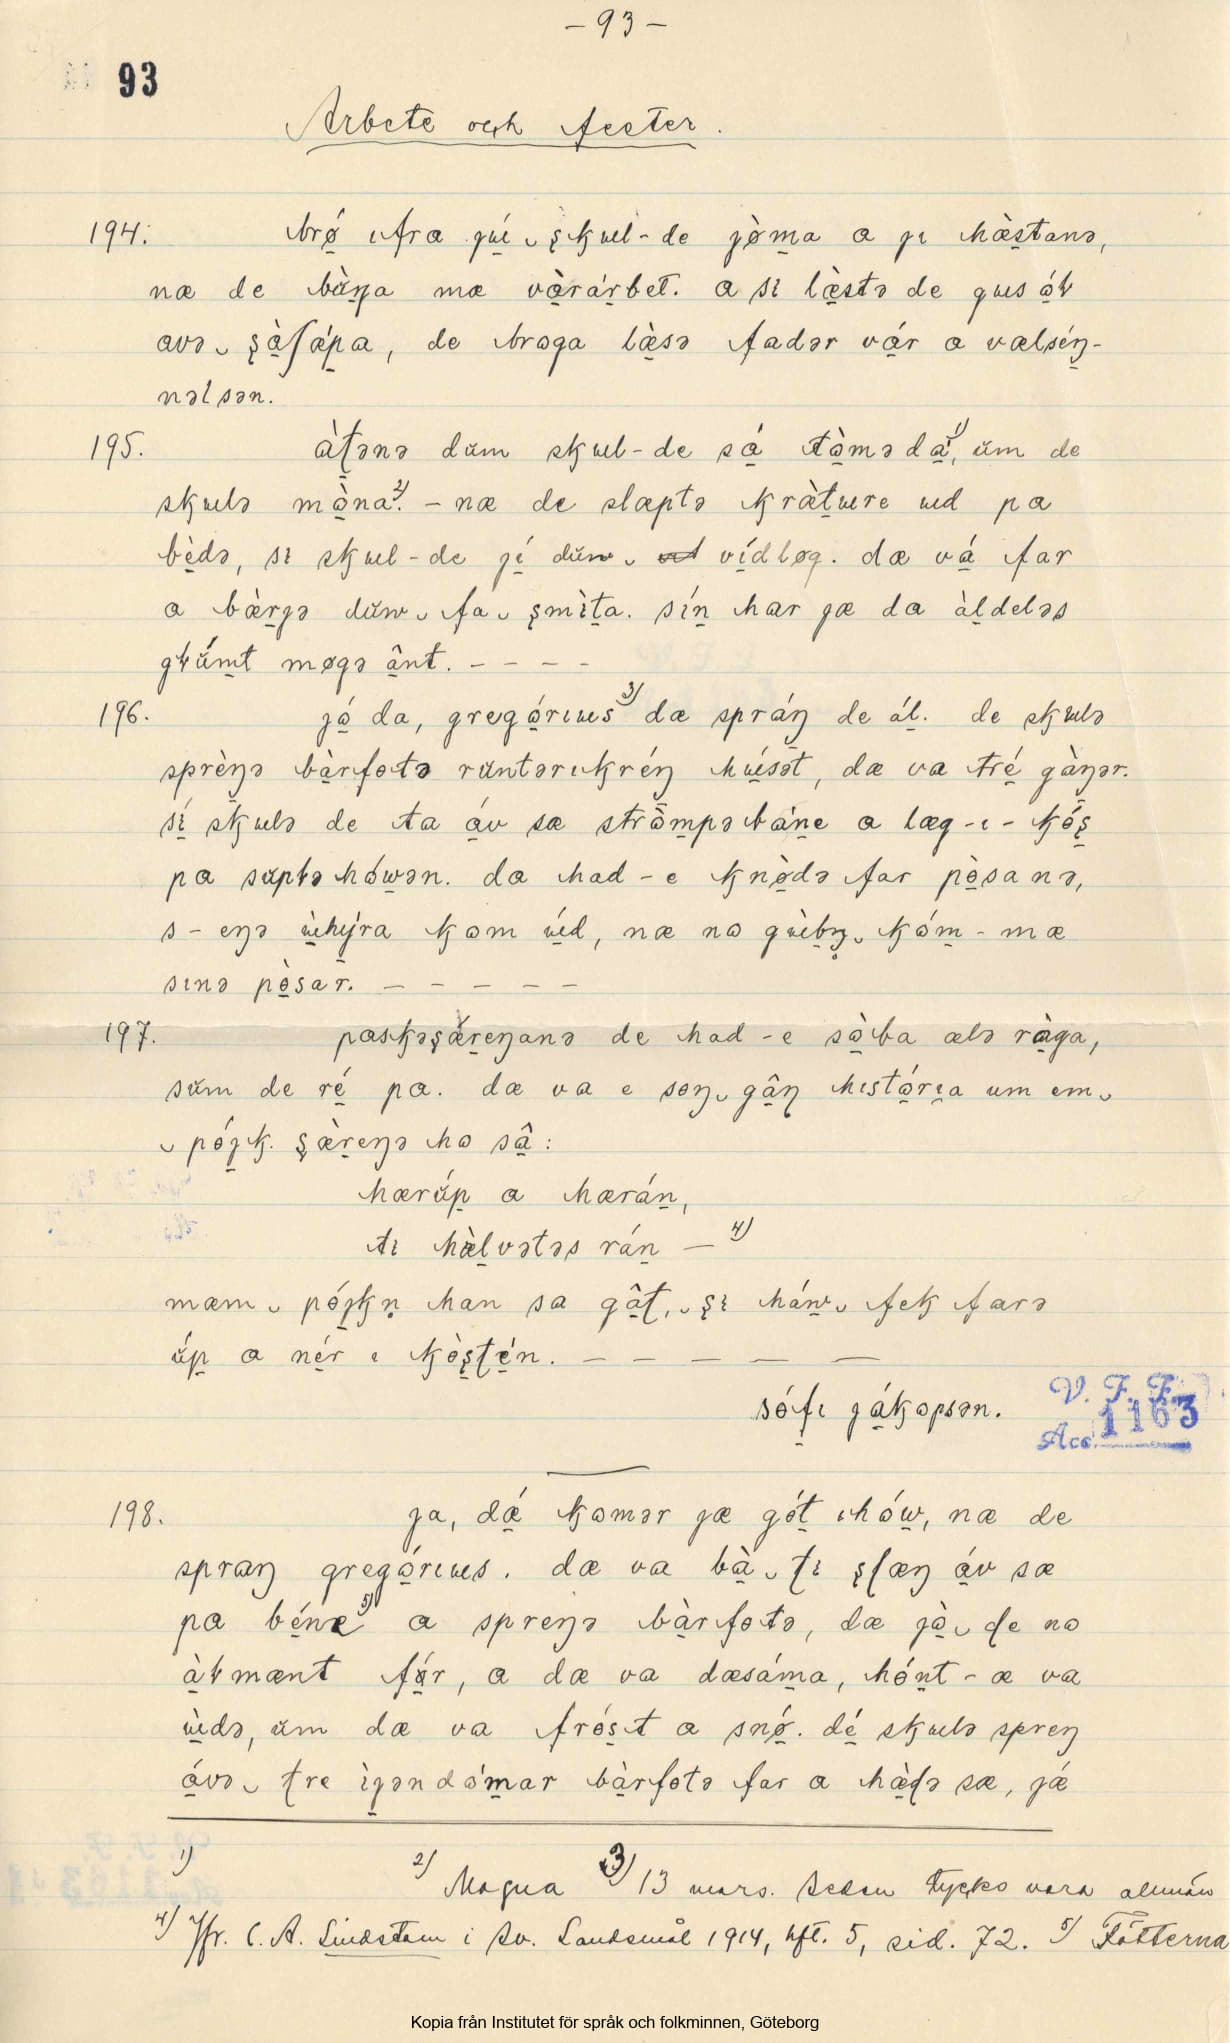 – 93 –
93
Arbete och fester.
194. brǿ ıfra jʉ́l ş̨kʉl-de jø̀ma a jı hæ̀stanə,
næ de bàŋa mæ vàrárbet. a si læ̀stə de gʉsó̱ɽ
avə şà̱ʃǽpa, de broga læ̀sə fadər vár a vælsén-
nəlsən.
195. àʈənə dŭm skʉl-de sá̱ tò̱mə dá̱¹⁾, ŭm de
skʉlə mò̱na²⁾. – næ de slæptə kràtʉre ʉd pa
bèdə, si skʉl-de jí dŭw vídløg. dæ vá̱ far
a bæ̀rjə dŭw fa şmìta. sín har jæ da àldeləs
gɽŭ́mt møgə ânt. – – – –
196. jó̱ da, gregó̱rıʉs³⁾ dæ spráŋ de ál. de skʉlə
sprèŋə bàrfotə rŭntərıkréŋ hʉ́sət, dæ va tré gàŋər.
sí skʉlə de ta áv sæ strò̱mpəbáne a læg-ı-kóş
pa sŭpɽəhówən. da had-e knø̀də far pò̱sanə,
s-eŋə ʉ̀hýra kom ʉ́d, næ no gʉ̀bŋ kóm-mæ
sınə pò̱sar. – – – – –
197. paskəşǽreŋanə de had-e sò̱ba ælə ràga,
sŭm de ré pa. dæ va e soŋ gâŋ hıstó̱rıa um em
pójk. şæ̀reŋə ho sâ̱:
hærŭ́p a hærán,
tı hæ̀lvətəs rán –⁴⁾
mæm pójkŋ han sa gâʈ, şi hánw fek farə
ŭ́p a nér ı kò̱şʈén. – – – – –
sófı jákopsən.
V. F. F.
Acc. 1163
198. ja, dǽ komər jæ gót ıhów, næ de
spraŋ gregó̱rıʉs. dæ va bà̱ ʈi şʃæŋ áv sæ
pa bénæ⁵⁾ a spreŋə bàrfotə, dæ jò̱ ɖe no
àɽmænt fó̱r, a dæ va dæsáma, hónt-æ va
ʉ̀də, ŭm dæ va fróşt a snǿ. dé skʉlə spreŋ
ávə ʈre ìjəndómar bàrfotə far a hæ̀ɖə sæ, jǽ
1) 2) Mogna 3) 13 mars. Seden tycks vara allmän
4) Jfr. C. A. Lindstam i Sv. Landsmål 1914, hft. 5, sid. 72. 5) Fötterna
Kopia från Institutet för språk och folkminnen, Göteborg